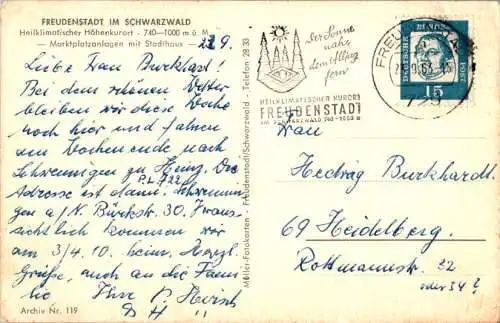 FREUDENSTADT IM SCHWARZWALD
Heilklimatischer Höhenkurort - 740-1000 m ü. M.
— Marktplatzanlagen mit Stadthaus —
22.9.
Liebe Frau Burckhardt!
Bei dem schönen Wetter
bleiben wir diese Woche
noch hier und fahren
am Wochenende nach
Schwenningen zu Heinz. Die
Adresse ist dann: Schwennin
gen a/N. Bürkstr. 30. Voraus
sichtlich kommen wir
am 3/4. 10. heim. Herzl.
Grüße, auch an die Fami
lie Ihre
Archiv Nr. 119
Müller-Fotokarten - Freudenstadt/Schwarzwald - Telefon 28 33
der Sonne
nah,
dem Alltag
fern
HEILKLIMATISCHER KURORT
FREUDENSTADT
IM SCHWARZWALD 740-1000 m
DEUTSCHE
15
Frau
Hedwig Burkhardt
69 Heidelberg.
Rottmannstr. 32
oder 34?